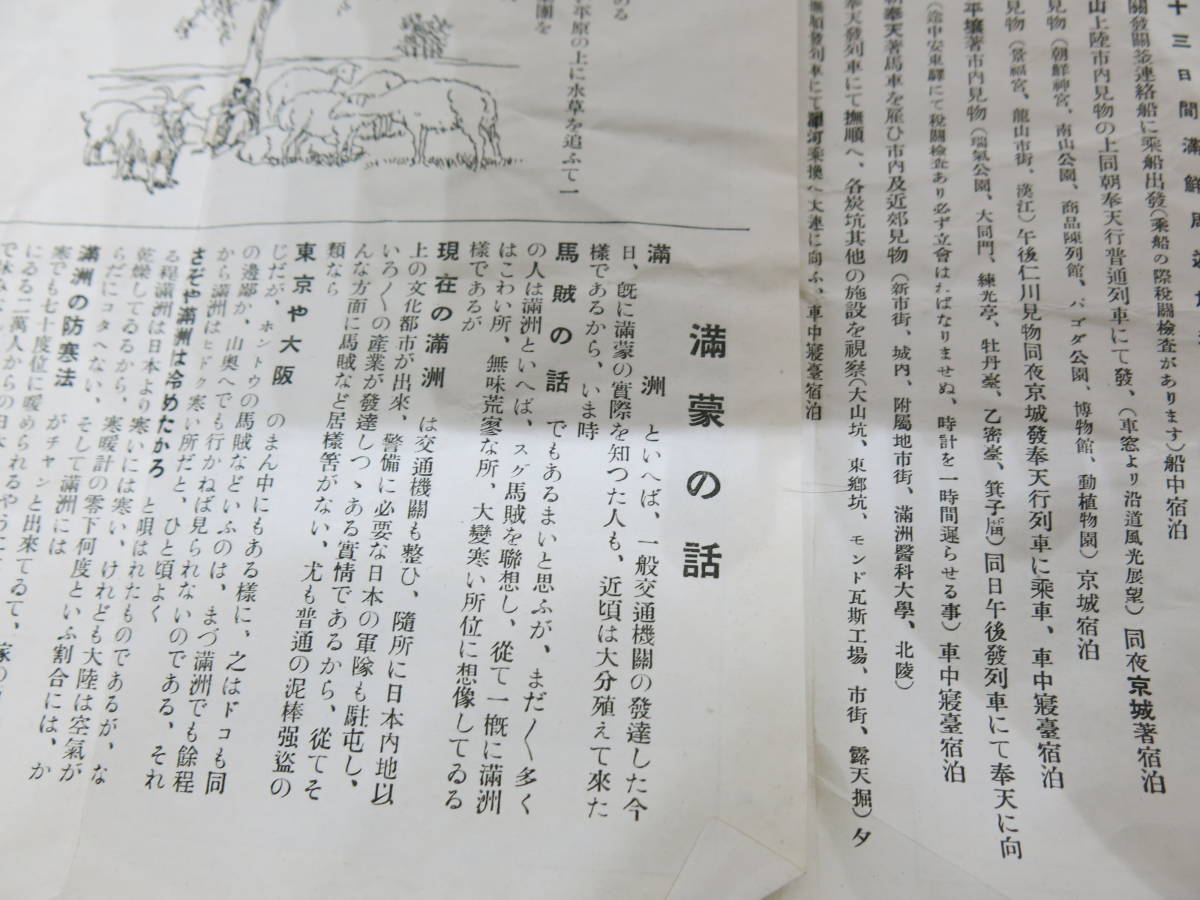 十三日間滿鮮
關發關釜連絡船に乘船出發(乘船の際稅關檢査があります)船中宿泊
山上陸市內見物の上同朝奉天行普通列車にて發、(車窓より沿道風光展望)同夜京城著宿泊
見物(朝鮮神宮、南山公園、商品陳列館、パゴダ公園、博物館、動植物園)京城宿泊
見物(景福宮、龍山市街、漢江)午後仁川見物同夜京城發奉天行列車に乘車、車中寢臺宿泊
平壤著市內見物(瑞氣公園、大同門、練光亭、牡丹臺、乙密臺、箕子廟)同日午後發列車にて奉天に向
(途中安東驛にて稅關檢査あり必ず立會はねばなりませぬ、時計を一時間遲らせる事)車中寢臺宿泊
朝奉天著馬車を雇ひ市內及近郊見物(新市街、城內、附屬地市街、滿洲醫科大學、北陵)
奉天發列車にて撫順へ、各炭坑其他の施設を視察(大山坑、東鄕坑、モンド瓦斯工場、市街、露天掘)夕
撫順發列車にて 河乘換へ大連に向ふ、車中寢臺宿泊
める
平原の上に水草を追ふて一
團を
滿蒙の話
滿洲 といへば、一般交通機關の發達した今
日、旣に滿蒙の實際を知つた人も、近頃は大分殖えて來た
樣であるから、いま時
馬賊の話 でもあるまいと思ふが、まだ〱多く
の人は滿洲といへば、スグ馬賊を聯想し、從て一槪に滿洲
はこわい所、無味荒寥な所、大變寒い所位に想像してゐる
樣であるが
現在の滿洲 は交通機關も整ひ、隨所に日本內地以
上の文化都市が出來、警備に必要な日本の軍隊も駐屯し、
いろ〱の產業が發達しつゝある實情であるから、從てそ
んな方面に馬賊など居樣筈がない、尤も普通の泥棒强盜の
類なら
東京や大阪 のまん中にもある樣に、之はドコも同
じだが、ホントウの馬賊などいふのは、まづ滿洲でも餘程
の邊鄙か、山奧へでも行かねば見られないのである、それ
から滿洲はヒドク寒い所だと、ひと頃よく
さぞや滿洲は冷めたかろ と唄はれたものであるが、な
る程滿洲は日本より寒いには寒い、けれども大陸は空氣が
乾燥してゐるから、寒暖計の零下何度といふ割合には、か
らだにコタへない、そして滿洲には
滿洲の防寒法 がチヤンと出來てゐて、家の
寒でも七十度位に暖められるやうに
にゐる二萬人からの日本